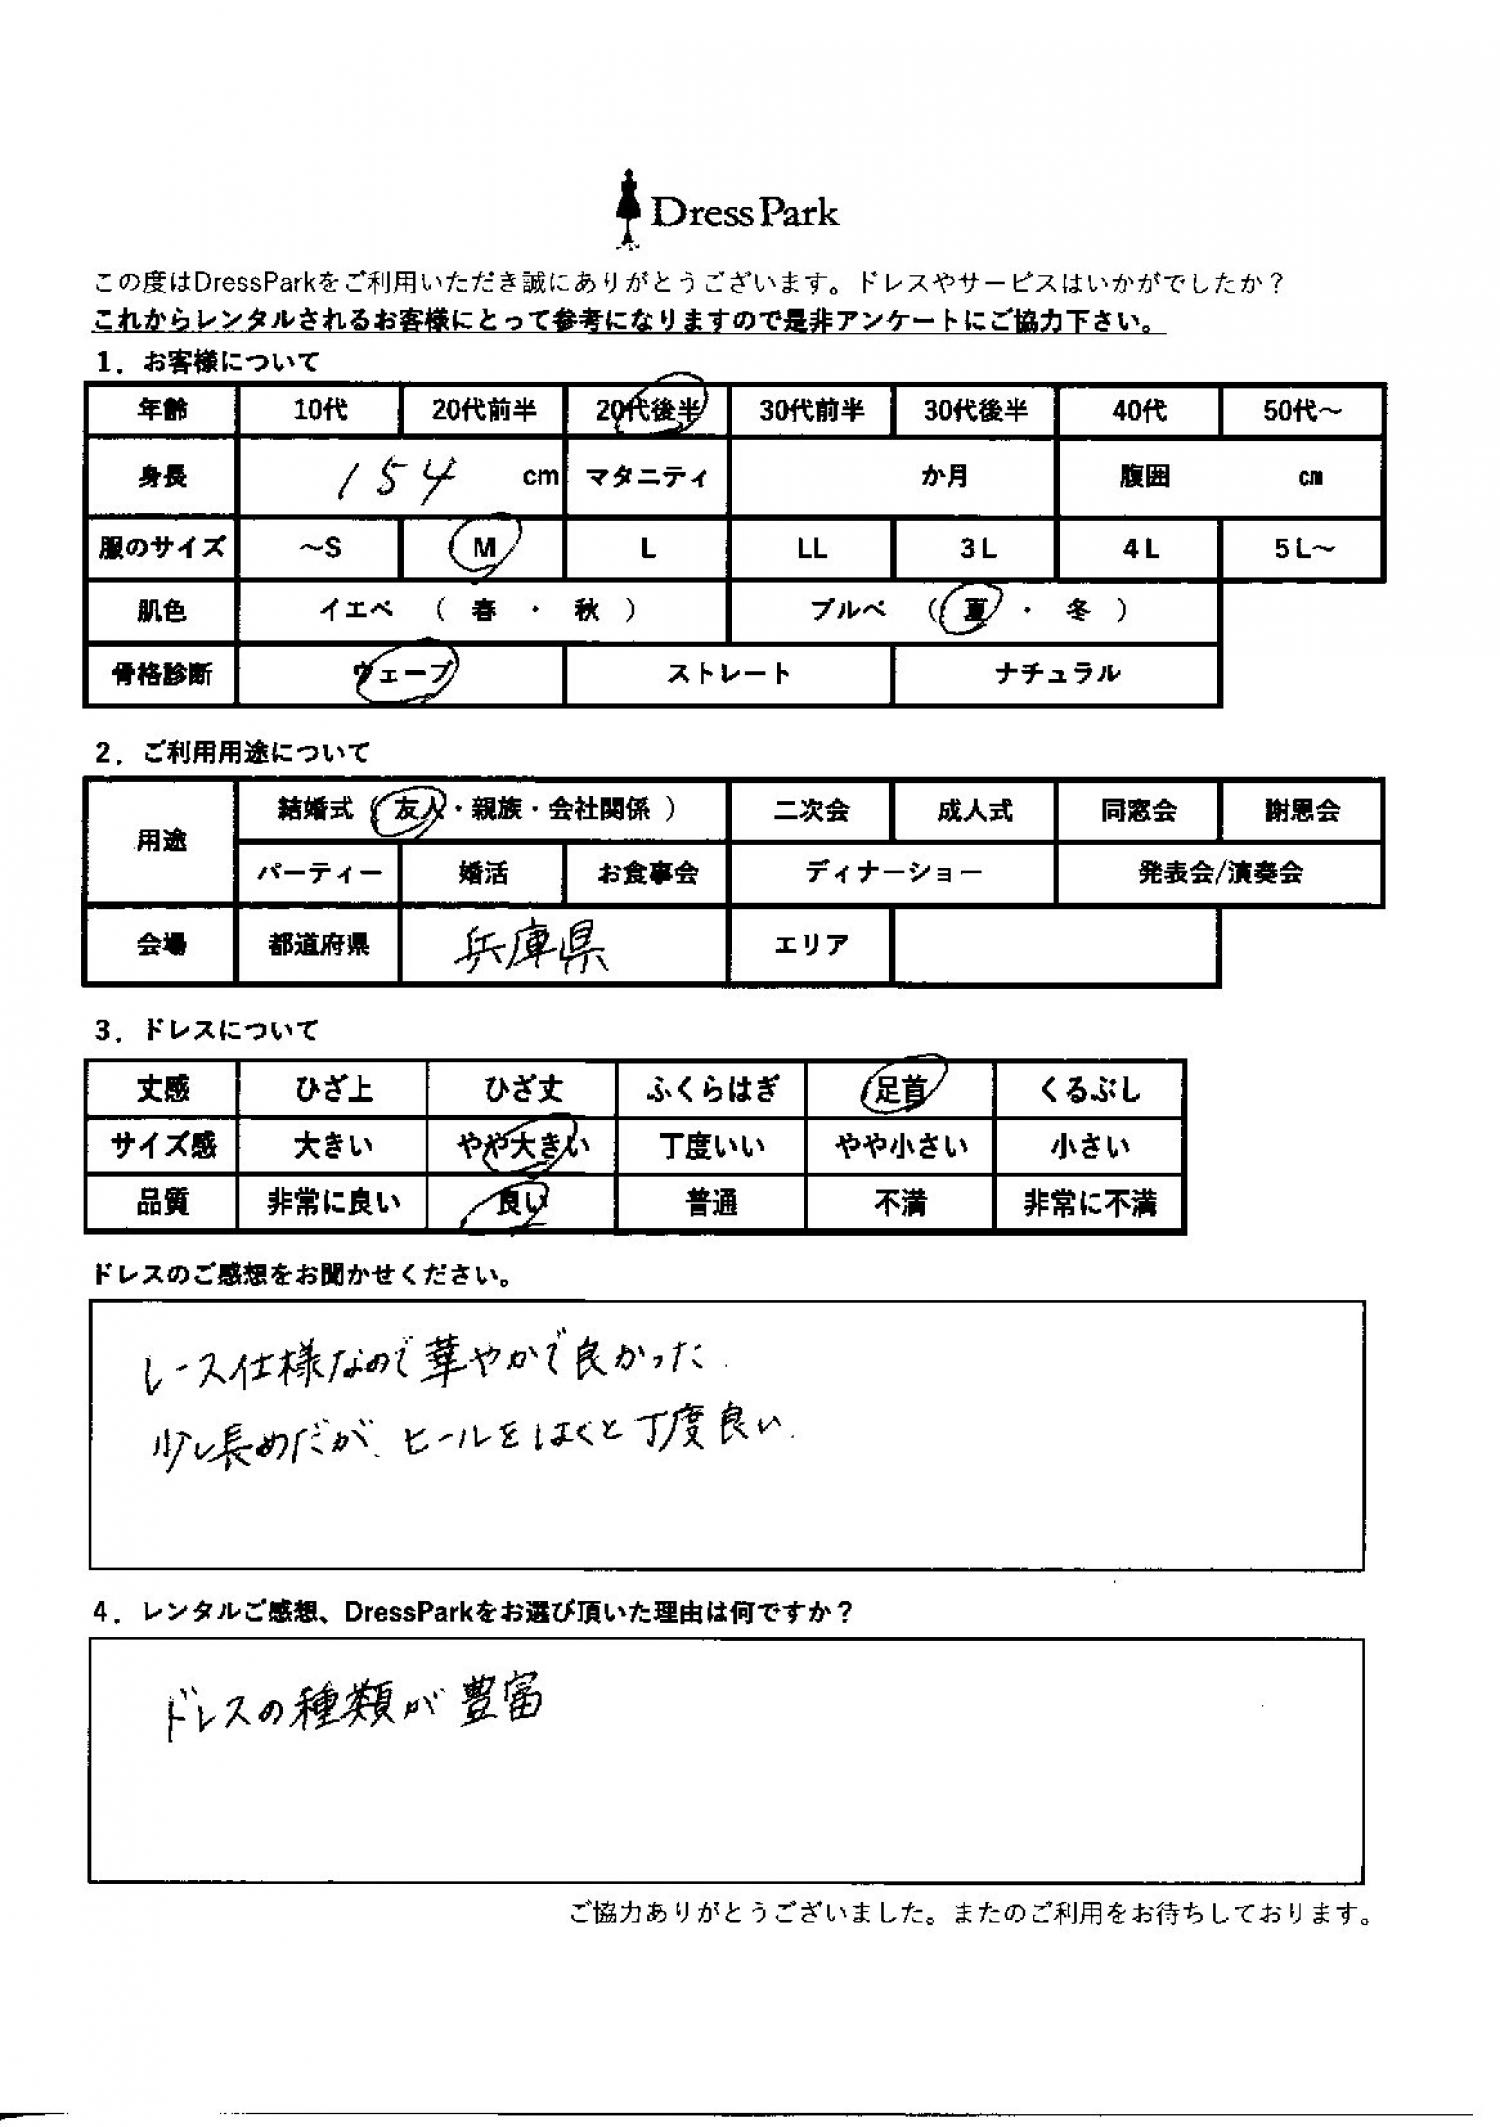 DressPark
この度はDressParkをご利用いただき誠にありがとうございます。ドレスやサービスはいかがでしたか？
これからレンタルされるお客様にとって参考になりますので是非アンケートにご協力下さい。
1．お客様について
年齢 10代 20代前半 20代後半 30代前半 30代後半 40代 50代～
身長 154 cm マタニティ か月 腹囲 ㎝
服のサイズ ～S M L LL 3L 4L 5L～
肌色 イエベ （ 春 ・ 秋 ） ブルベ （ 夏 ・ 冬 ）
骨格診断 ウェーブ ストレート ナチュラル
2．ご利用用途について
用途 結婚式（ 友人・親族・会社関係 ） 二次会 成人式 同窓会 謝恩会
パーティー 婚活 お食事会 ディナーショー 発表会/演奏会
会場 都道府県 兵庫県 エリア
3．ドレスについて
丈感 ひざ上 ひざ丈 ふくらはぎ 足首 くるぶし
サイズ感 大きい やや大きい 丁度いい やや小さい 小さい
品質 非常に良い 良い 普通 不満 非常に不満
ドレスのご感想をお聞かせください。
レース仕様なので華やかで良かった．
少し長めだが、ヒールをはくと丁度良い．
4．レンタルご感想、DressParkをお選び頂いた理由は何ですか？
ドレスの種類が豊富
ご協力ありがとうございました。またのご利用をお待ちしております。